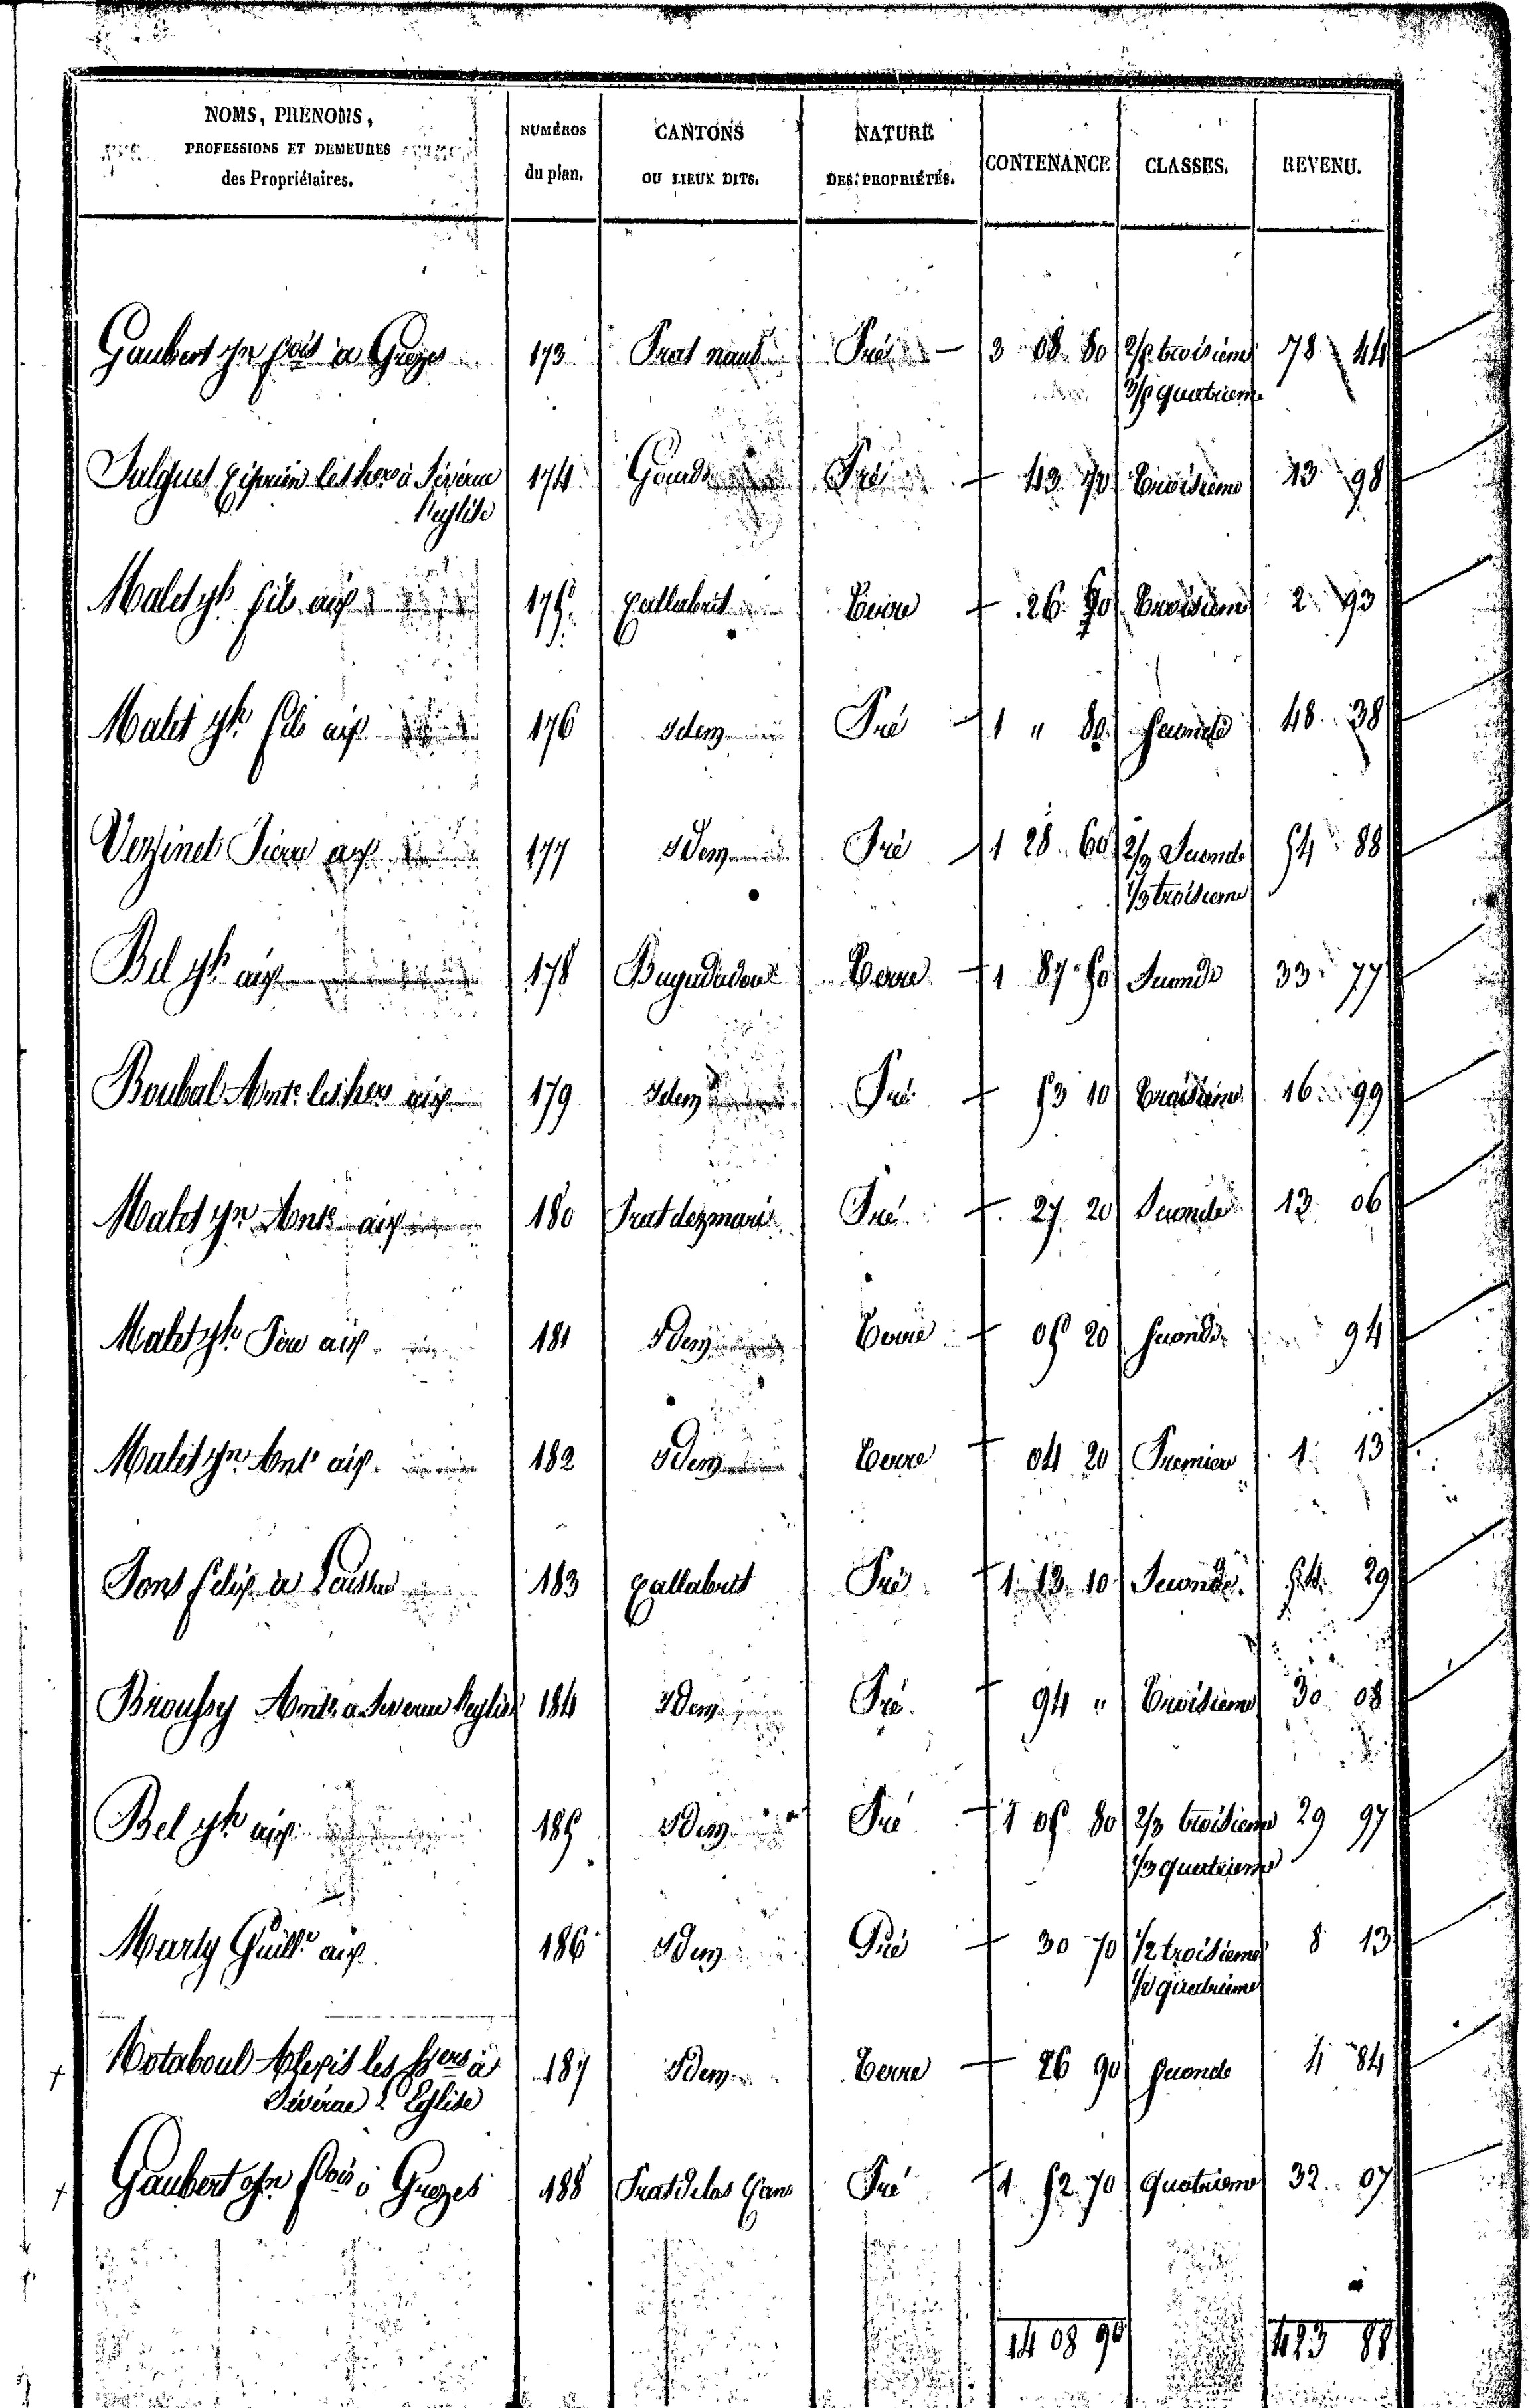 NOMS, PRÉNOMS, PROFESSIONS ET DEMEURES des Propriétaires. NUMÉROS du plan. CANTONS OU LIEUX DITS. NATURE DES PROPRIÉTÉS. CONTENANCE CLASSES. REVENU.
Gaubert jn fois à Grezes 173 Prat naut Pré 3 08 80 2/5 troisieme 78 44
3/5 quatrieme
Julques Ciprien les hers à Séverac 174 Gourds Pré 43 70 troisieme 13 98
l'eglise
Malet jh fils aix 175 Callabrit terre 26 70 troisieme 2 93
Malet jh fils aix 176 idem Pré 1 " 80 seconde 48 38
Verzinet Pierre aix 177 idem Pré 1 28 60 2/3 Seconde 54 88
1/3 troisieme
Bel jh aix 178 terre 1 87 60 Seconde 33 77
Boubal Ante les hers aix 179 idem Pré 53 10 troisieme 16 99
Malet jn Ante aix 180 Prat dezmari Pré 27 20 Seconde 13 06
Malet jh aix 181 idem terre 05 20 seconde 94
Malet jn Ante aix 182 idem terre 04 20 Premier 1 13
Pons felix à 183 Callabrit Pré 1 13 10 Seconde 54 29
Broussy Ante à Severac l'eglise 184 idem Pré 94 " troisieme 30 08
Bel jh aix 185 idem Pré 1 05 80 2/3 troisieme 29 97
1/3 quatrieme
Marty Guille aix 186 idem Pré 30 70 1/2 troisieme 8 13
1/2 quatrieme
Notaboul Alexis les hers à 187 idem terre 26 90 seconde 4 84
Séverac L'Eglise
Gaubert jn fois à Grezes 188 Prat de las Cans Pré 1 52 70 quatrieme 32 07
14 08 90 423 88